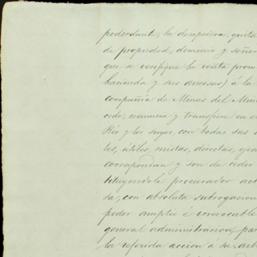 poderdante, la desapodera, quita
de propiedad, dominio y seño
que se verifique la venta prom
hacienda y sus anexos) á la
compañia de Minas del Mon
cede, renuncia y transfiere en e
Rio y los suyos, con todas sus
les, útiles, mistas, directas, eje
correspondan y son de ceder
tituyendola procurador act
sa, con absoluta subrogacion
poder amplio é irrevocable
general administracion, para
la referida accion á su arb